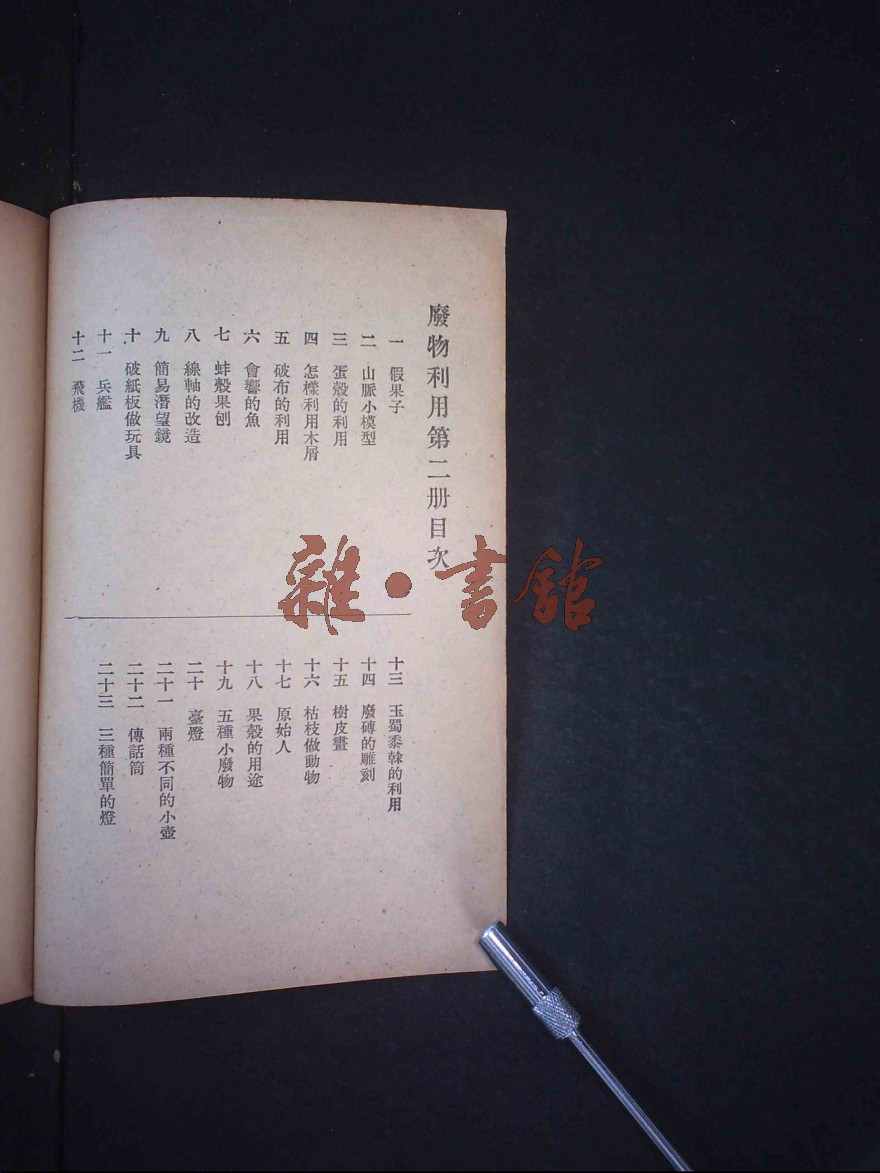 廢物利用第二册目次
一 假果子
二 山脈小模型
三 蛋殼的利用
四 怎樣利用木屑
五 破布的利用
六 會響的魚
七 蚌殼果刨
八 線軸的改造
九 簡易潛望鏡
十 破紙板做玩具
十一 兵艦
十二 飛機
十三 玉蜀黍榦的利用
十四 廢磚的雕刻
十五 樹皮畫
十六 枯枝做動物
十七 原始人
十八 果殼的用途
十九 五種小廢物
二十 臺燈
二十一 兩種不同的小壺
二十二 傳話筒
二十三 三種簡單的燈
雜·書館